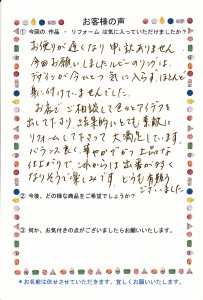 お客様の声
① 今回の 作品 ・ リフォーム は気に入っていただけましたか?
お便りが遅くなり申し訳ありません。
今回お願いしましたルビーのリングは、
デザインが今いとつ気に入らずほとんど
身に付けていませんでした。
お店でご相談して色々とアイデアを
出して下さり、結果的にとても素敵に
リフォームして下さって大満足しています。
バランス良く、華やかでかつ上品な
仕上がりで これからは出番が多く
なりそうで楽しみです。どうも有難う
ございました
② 今後、どの様な商品をご希望でしょうか?
③ 何か、お気付きの点がございましたらお願いいたします。
*お名前は伏せさせていただきます。宜しくお願いいたします。